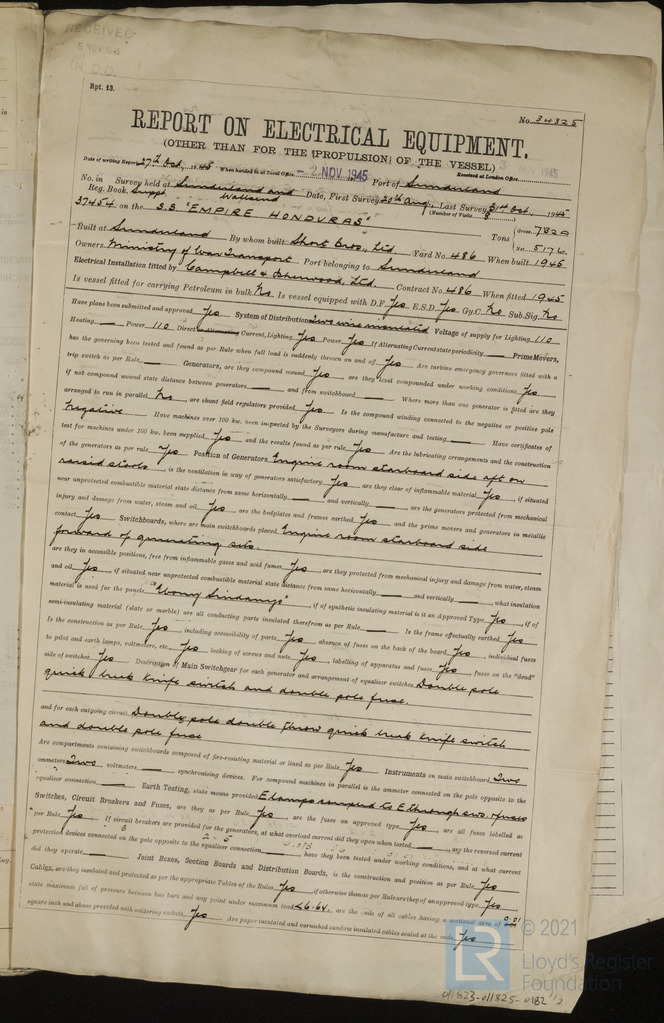 RECEIVED
5 NOV 45
IN D.O.
Rpt. 13.
No. 34325
REPORT ON ELECTRICAL EQUIPMENT.
(OTHER THAN FOR THE PROPULSION OF THE VESSEL)
Date of writing Report 27th Oct. 1945 When handed in at Local Office - 2 NOV 1945 Port of Sunderland Received at London Office
No. in Survey held at Sunderland and Date, First Survey 20th Aug. Last Survey 31st Oct. 1945
Reg. Book. Suppt Wallsend (Number of Visits 8
37454 on the S.S. "EMPIRE HONDURAS" Tons Gross 7320 Net 5176
Built at Sunderland By whom built Short Bros., Ltd Yard No. 486 When built 1945
Owners Ministry of War Transport Port belonging to Sunderland
Electrical Installation fitted by Campbell & Isherwood, Ltd. Contract No. 486 When fitted 1945
Is vessel fitted for carrying Petroleum in bulk No Is vessel equipped with D.F. Yes E.S.D. Yes Gy.C. No Sub.Sig. No
Have plans been submitted and approved Yes System of Distribution Two wire insulated Voltage of supply for Lighting 110
Heating Power 110 Direct or Alternating Current, Lighting Yes Power Yes If Alternating Current state periodicity Prime Movers,
has the governing been tested and found as per Rule when full load is suddenly thrown on and off Yes Are turbine emergency governors fitted with a
trip switch as per Rule Generators, are they compound wound Yes are they level compounded under working conditions Yes
if not compound wound state distance between generators and from switchboard Where more than one generator is fitted are they
arranged to run in parallel No, are shunt field regulators provided Yes Is the compound winding connected to the negative or positive pole
Negative Have machines over 100 kw. been inspected by the Surveyors during manufacture and testing Have certificates of
test for machines under 100 kw. been supplied Yes and the results found as per rule Yes Are the lubricating arrangements and the construction
of the generators as per rule Yes Position of Generators Engine room starboard side aft on
raised stools, is the ventilation in way of generators satisfactory Yes are they clear of inflammable material Yes, if situated
near unprotected combustible material state distance from same horizontally and vertically are the generators protected from mechanical
injury and damage from water, steam and oil Yes are the bedplates and frames earthed Yes and the prime movers and generators in metallic
contact Yes Switchboards, where are main switchboards placed Engine room starboard side
forward of generating sets.
are they in accessible positions, free from inflammable gases and acid fumes Yes, are they protected from mechanical injury and damage from water, steam
and oil Yes, if situated near unprotected combustible material state distance from same horizontally and vertically, what insulation
material is used for the panels "Ebony Sindanyo", if of synthetic insulating material is it an Approved Type Yes, if of
semi-insulating material (slate or marble) are all conducting parts insulated therefrom as per Rule Is the frame effectually earthed Yes
Is the construction as per Rule Yes, including accessibility of parts Yes absence of fuses on the back of the board Yes, individual fuses
to pilot and earth lamps, voltmeters, etc. Yes locking of screws and nuts Yes, labelling of apparatus and fuses Yes, fuses on the "dead"
side of switches Yes Description of Main Switchgear for each generator and arrangement of equaliser switches Double pole
quick break knife switch and double pole fuse.
and for each outgoing circuit Double pole double throw quick break knife switch
and double pole fuse
Are compartments containing switchboards composed of fire-resisting material or lined as per Rule Yes Instruments on main switchboard Two
ammeters Two voltmeters synchronising devices. For compound machines in parallel is the ammeter connected on the pole opposite to the
equaliser connection Earth Testing, state means provided E lamps coupled to E through sws. & fuses
Switches, Circuit Breakers and Fuses, are they as per Rule Yes are the fuses an approved type Yes, are all fuses labelled as
per Rule Yes If circuit breakers are provided for the generators, at what overload current did they open when tested, are the reversed current
protection devices connected on the pole opposite to the equaliser connection, have they been tested under working conditions, and at what current
did they operate Joint Boxes, Section Boards and Distribution Boards, is the construction and position as per Rule Yes
Cables, are they insulated and protected as per the appropriate Tables of the Rules Yes, if otherwise than as per Rule are they of an approved type Yes
state maximum fall of pressure between bus bars and any point under maximum load <6.6v., are the ends of all cables having a sectional area of 0.01
square inch and above provided with soldering sockets Yes Are paper insulated and varnished cambric insulated cables sealed at the ends Yes
© 2021
Lloyd's Register
Foundation
LR
011823-011825-0182 1/2